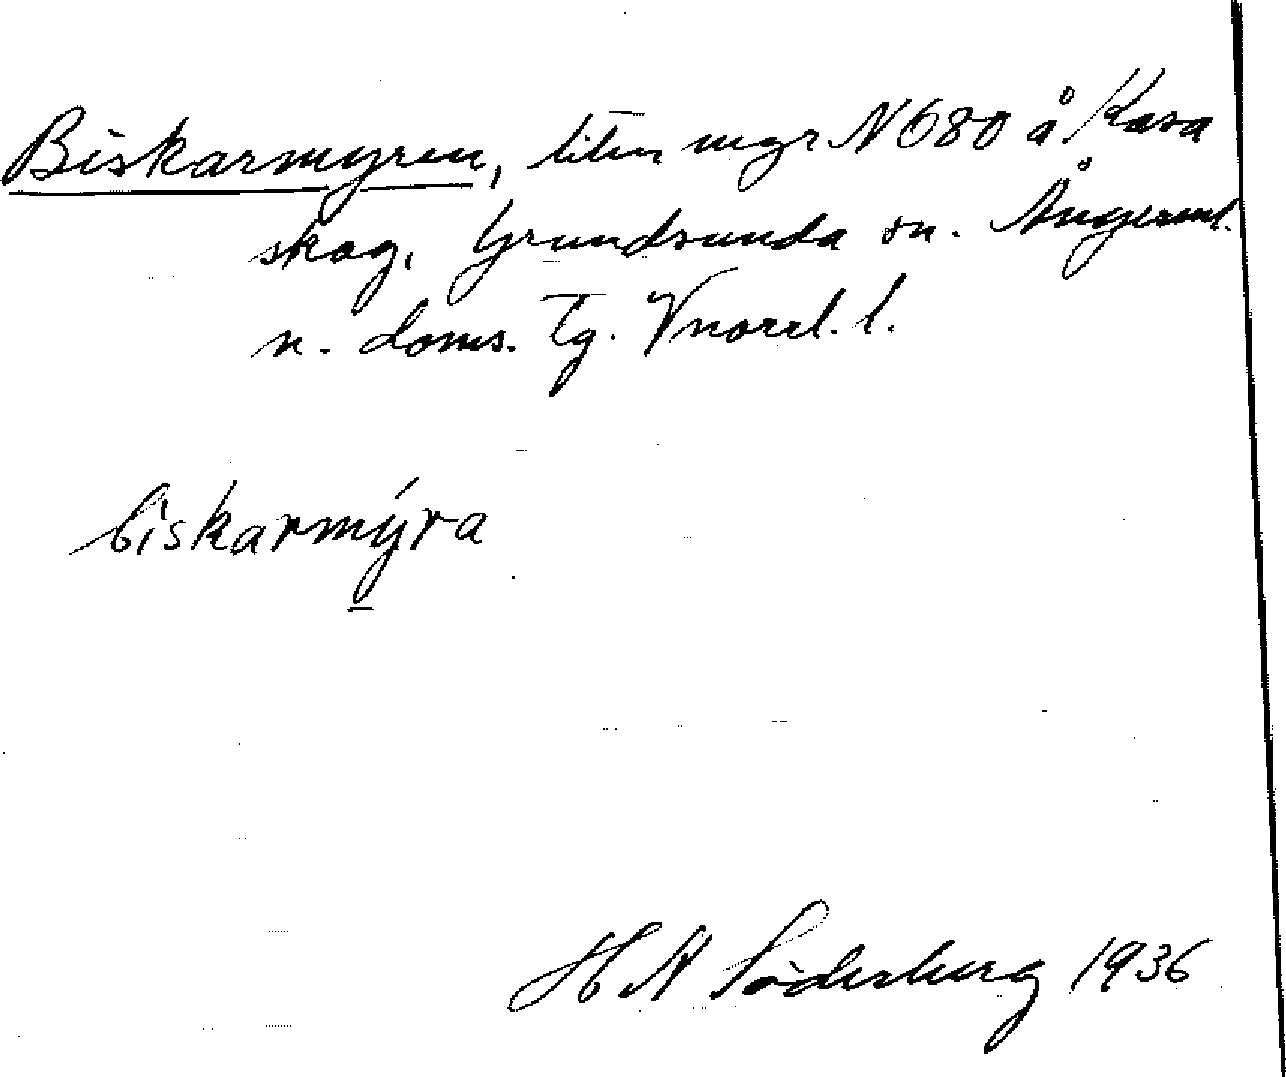 Biskarmyren, liten myr N 680 å Kasa
skog, Grundsunda sn. Ångerml.
n. doms. Tg. Vnorrl. l.
biskarmýra
H N Söderberg 1936